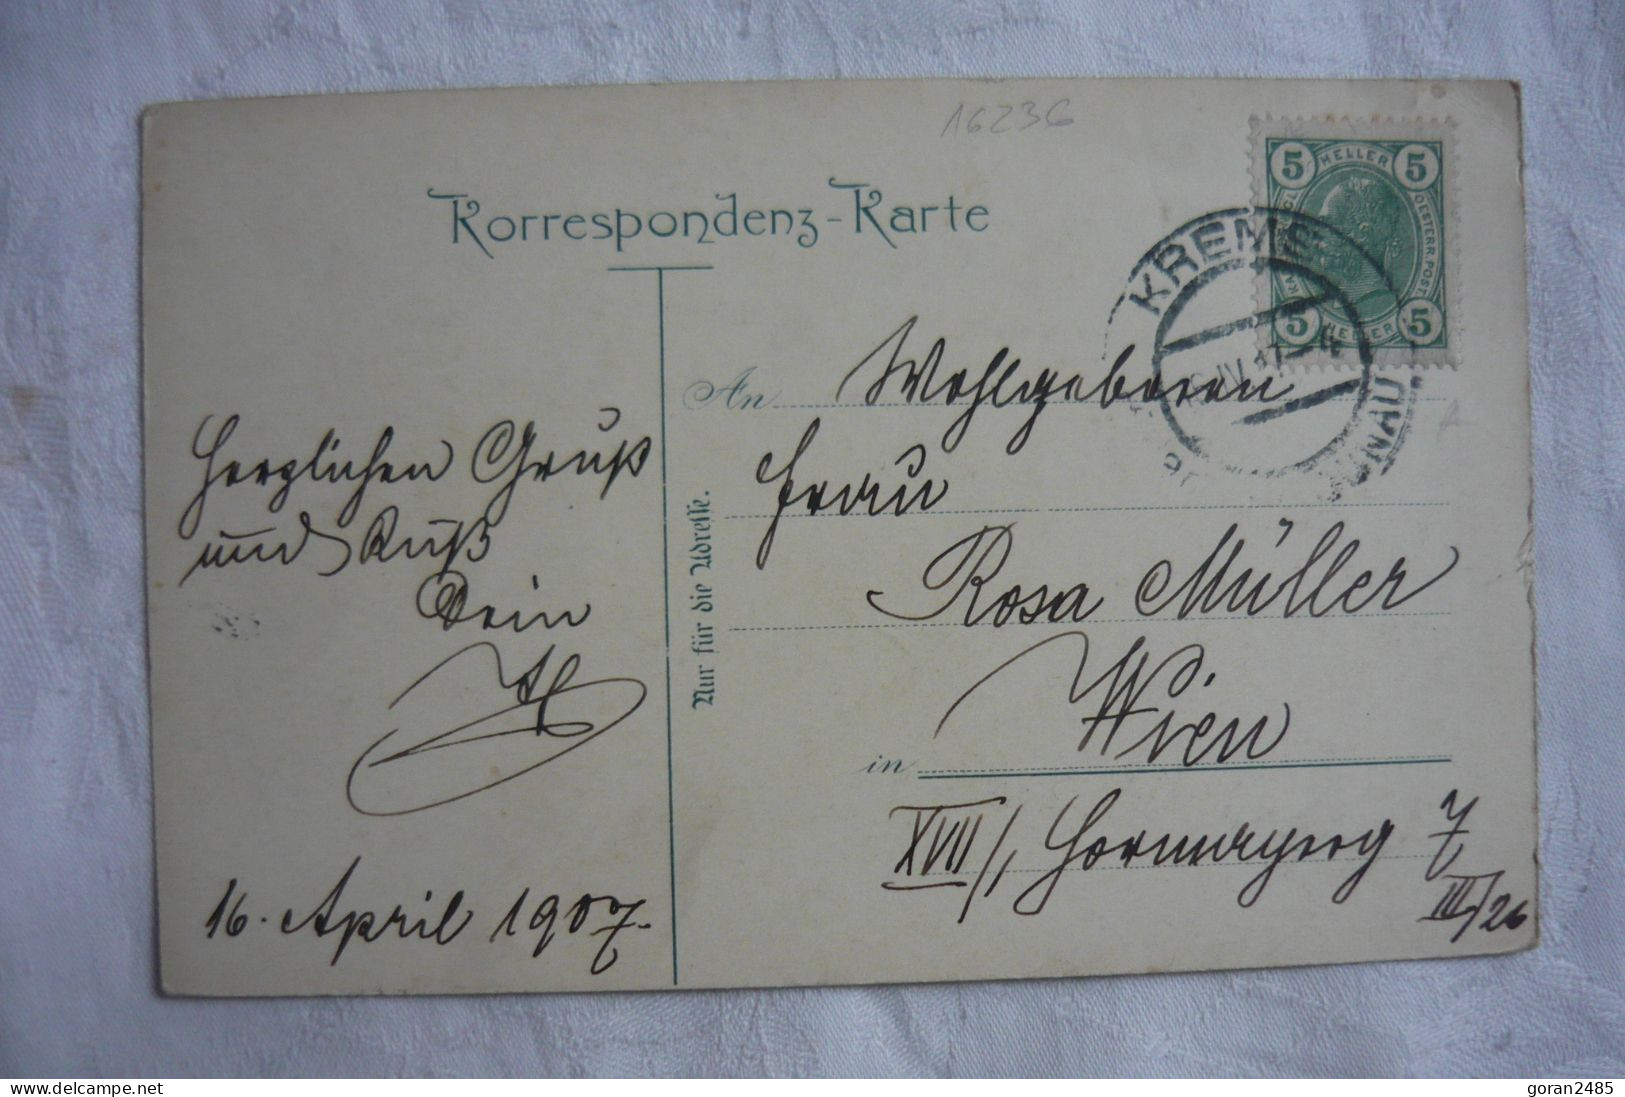 16236
Korrespondenz-Karte
5 HELLER 5
OESTERR. POST
5 HELLER 5
KREMS
NAU
An Wohlgeboren
Frau
Rosa Müller
in Wien
XVII/1, Hormayrg 7
III/26
Nur für die Adresse.
Herzlichen Gruß
und Kuß
Dein
16. April 1907.
goran2485